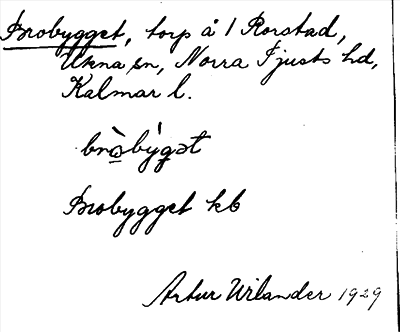 Brobygget, torp å 1 Rorstad,
Ukna sn, Norra Tjusts hd,
Kalmar l.
brò̱bý̀gət
Brobygget kb
Artur Wilander 1929